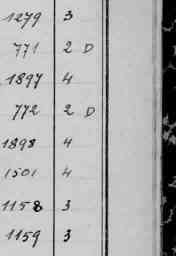 1279 3
771 2 D
1897 4
772 2 D
1898 4
1501 4
1158 3
1159 3